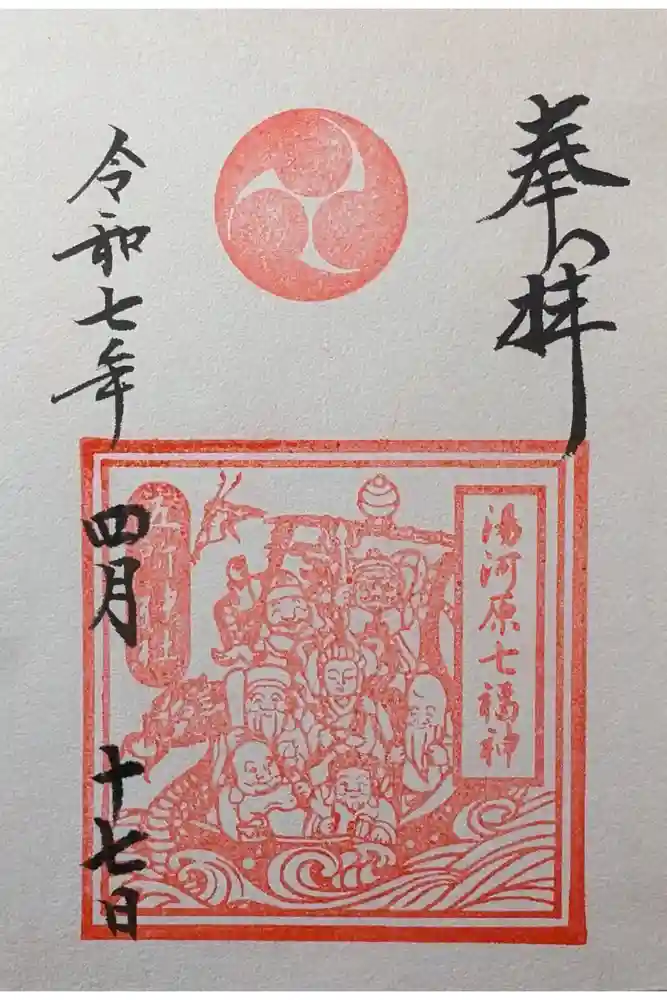 奉拝
湯河原七福神
五所神社
令和七年
四月
十七日